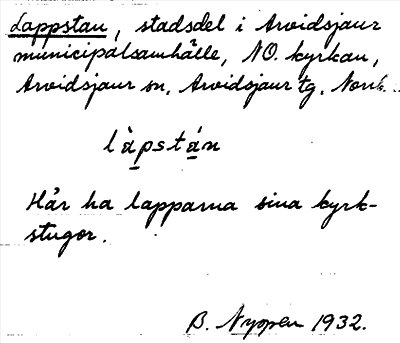 Lappstan, stadsdel i Arvidsjaur
municipalsamhälle, NO. kyrkan,
Arvidsjaur sn, Arvidsjaur tg. Norrb.
làpstán
Här ha lapparna sina kyrk-
stugor.
B. Nyopen 1932.